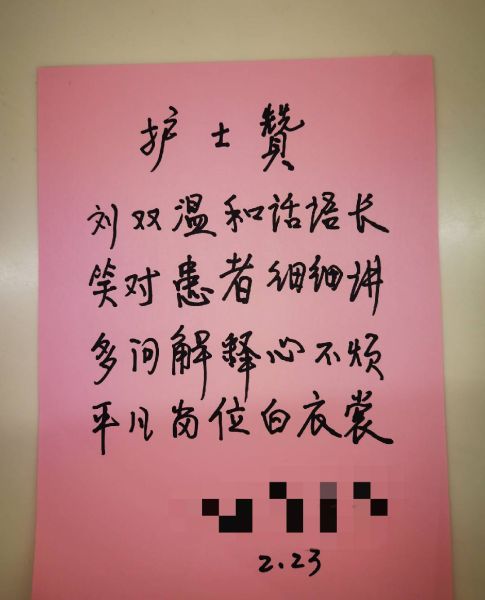 护士赞
刘双温和话语长
笑对患者细细讲
多问解释心不烦
平凡岗位白衣裳
2.23